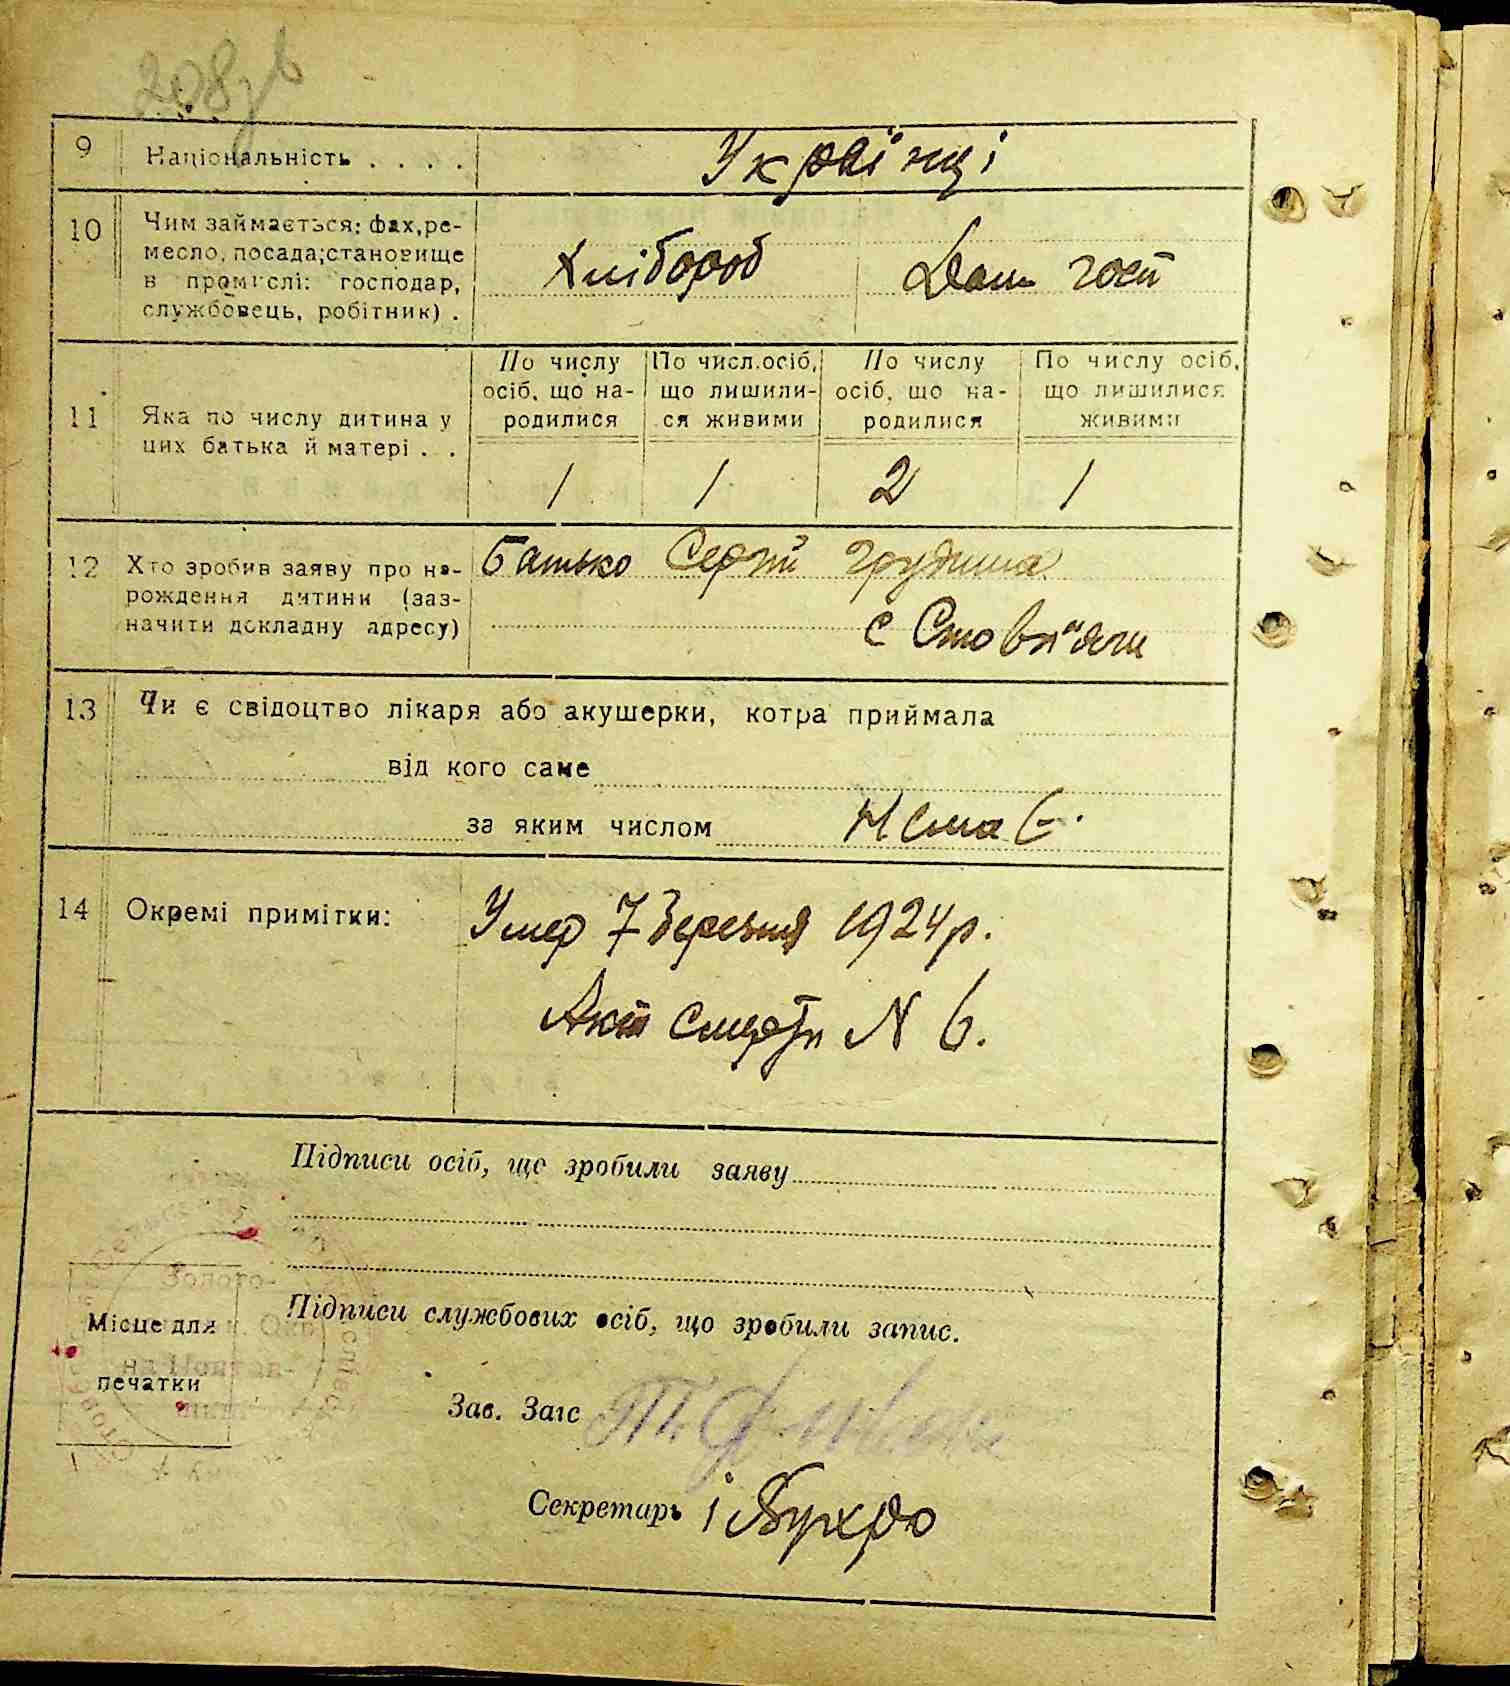 208зв
9 Національність . . . . Українці
10 Чим займається: фах, ре-
месло, посада; становище
в промислі: господар,
службовець, робітник) .
Хлібороб Дом госп
11 Яка по числу дитина у
цих батька й матері . .
По числу осіб, що на-родилися
По числ. осіб, що лишили-ся живими
По числу осіб, що на-родилися
По числу осіб, що лишилися живими
1 1 2 1
12 Хто зробив заяву про на-
рождення дитини (заз-
начити докладну адресу)
Батько Сергій Грудина
с Стовп"яги
13 Чи є свідоцтво лікаря або акушерки, котра приймала
від кого саме
за яким числом Немає.
14 Окремі примітки: Умер 7 березня 1924 р.
Акт смерти N 6.
Підписи осіб, що зробили заяву
Підписи службових осіб, що зробили запис.
Золото-
Місце для
печатки
Зав. Загс
Секретарь